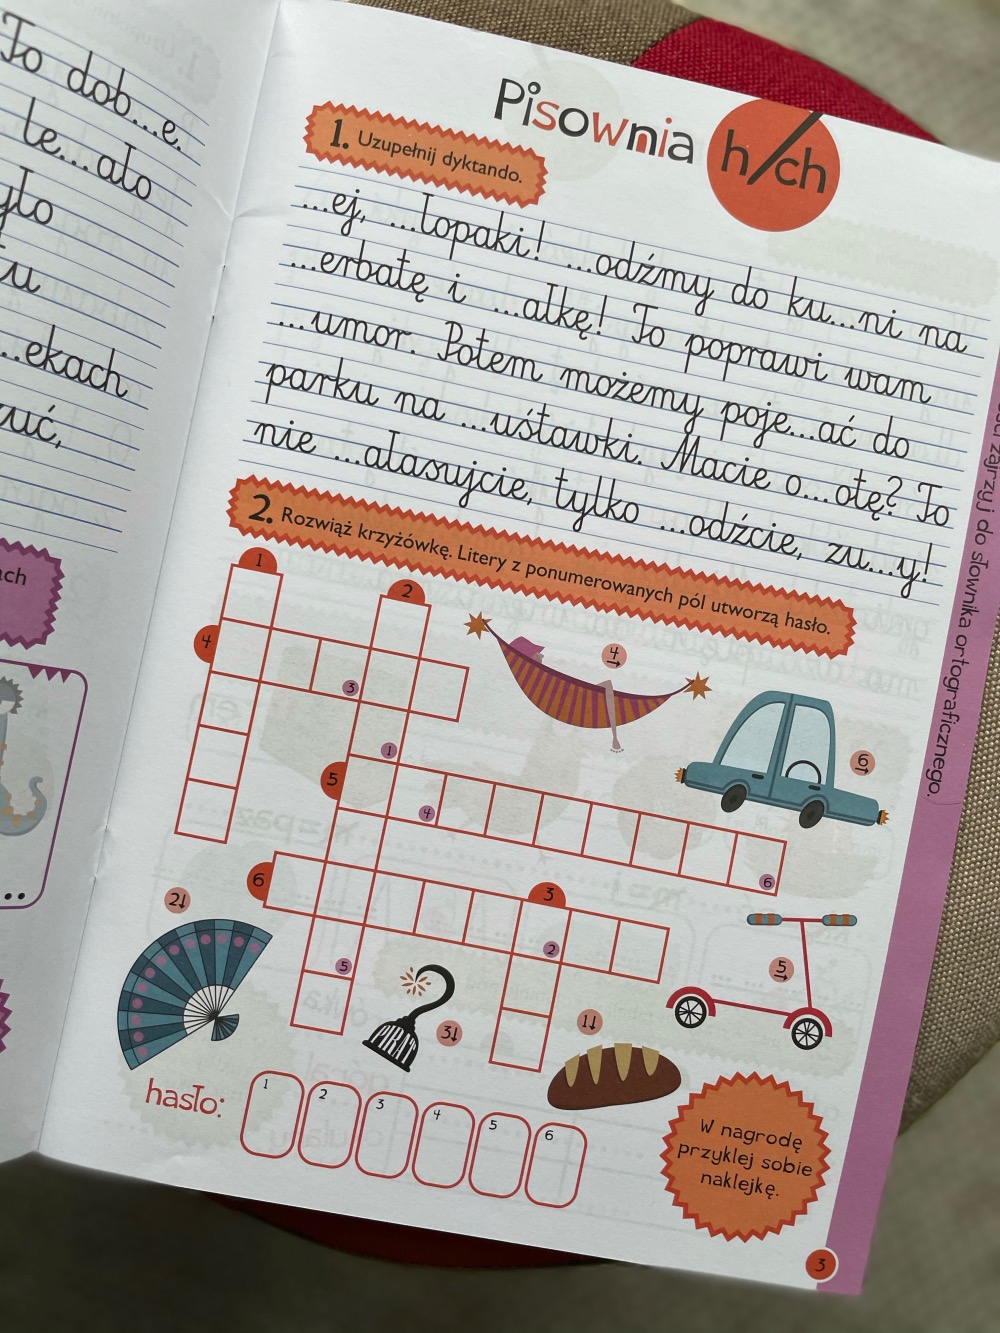 To dob...e.
le...ało
yło
...ekach
uć,
ach
...
Pisownia h/ch
1. Uzupełnij dyktando.
...ej, ...łopaki! ...odźmy do ku...ni na
...erbatę i ...ałkę! To poprawi wam
...umor. Potem możemy poje...ać do
parku na ...uśtawki. Macie o...otę? To
nie ...ałasujcie, tylko ...odźcie, zu...y!
2. Rozwiąż krzyżówkę. Litery z ponumerowanych pól utworzą hasło.
1
2
4
3
1
5
4
6
6
3
2
5
4→
6→
2↓
5→
3↓
PIRAT
1↓
hasło:
1 2 3 4 5 6
W nagrodę
przyklej sobie
naklejkę.
zajrzyj do słownika ortograficznego.
3